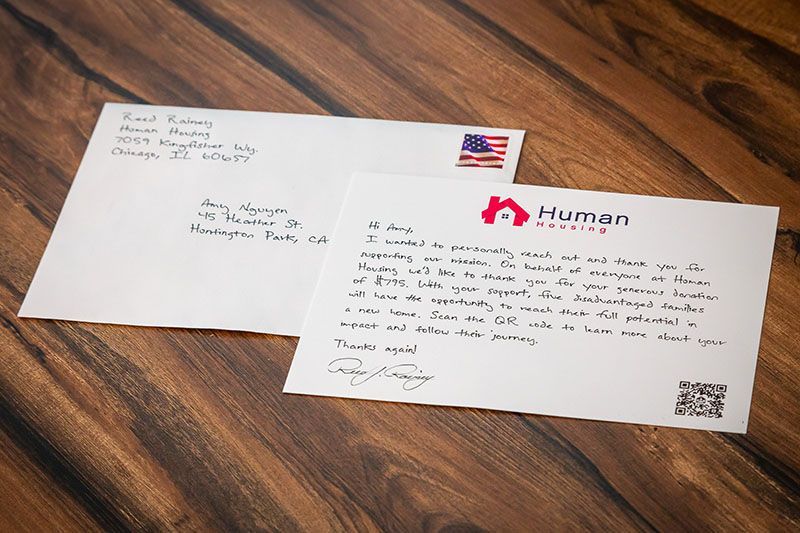 Reed Rainey
Human Housing
7059 Kingfisher Wy.
Chicago, IL 60657
Amy Nguyen
45 Heather St.
Huntington Park, CA
Human
Housing
Hi Amy,
I wanted to personally reach out and thank you for
supporting our mission. On behalf of everyone at Human
Housing we'd like to thank you for your generous donation
of $795. With your support, five disadvantaged families
will have the opportunity to reach their full potential in
a new home. Scan the QR code to learn more about your
impact and follow their journey.
Thanks again!
Reed J. Rainey